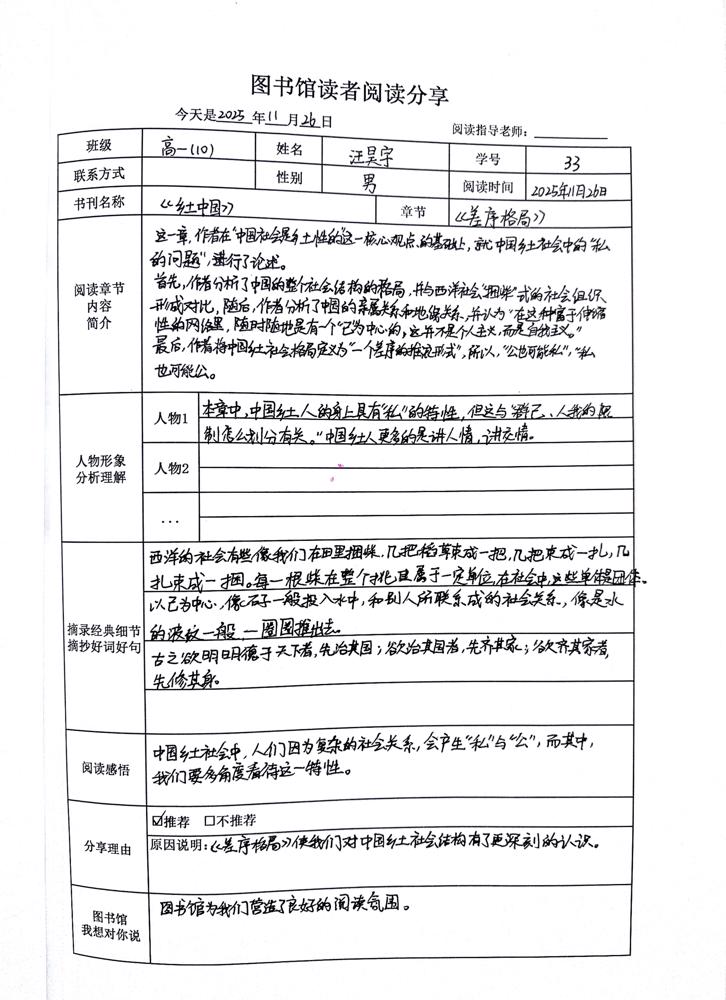 图书馆读者阅读分享
今天是2025年11月26日
阅读指导老师：
班级 高一(10) 姓名 汪昊宇 学号 33
联系方式 性别 男 阅读时间 2025年11月26日
书刊名称 《乡土中国》 章节 《差序格局》
阅读章节
内容
简介
这一章，作者在“中国社会是乡土性的”这一核心观点的基础上，就中国乡土社会中的“私
的问题”，进行了论述。
首先，作者分析了中国的整个社会结构的格局，并与西洋社会“捆柴”式的社会组织
形成对比，随后，作者分析了中国的亲属关系和地缘关系，并认为“在这种富于伸缩
性的网络里，随时随地是有一个“己”为中心的，这并不是个人主义，而是自我主义。”
最后，作者将中国乡土社会格局定义为“一个差序的推浪形式”，所以，“公也可能私”，“私
也可能公。
人物形象
分析理解
人物1
本章中，中国乡土人的身上具有“私”的特性，但这与“群己、人我的
制怎么划分有关。”中国乡土人更多的是讲人情，讲交情。
人物2
...
摘录经典细节
摘抄好词好句
西洋的社会有些像我们在田里捆柴，几把稻草束成一把，几把束成一扎，几
扎束成一捆。每一根柴在整个挑里属于一定单位，在社会中，这些单位是团体。
以己为中心，像石子一般投入水中，和别人所联系成的社会关系，像是水
的波纹一般，一圈圈推出去。
古之欲明明德于天下者，先治其国；欲治其国者，先齐其家；欲齐其家者，
先修其身。
阅读感悟
中国乡土社会中，人们因为复杂的社会关系，会产生“私”与“公”，而其中，
我们要多角度看待这一特性。
分享理由
☑推荐 □不推荐
原因说明：《差序格局》使我们对中国乡土社会结构有了更深刻的认识。
图书馆
我想对你说
图书馆为我们营造了良好的阅读氛围。